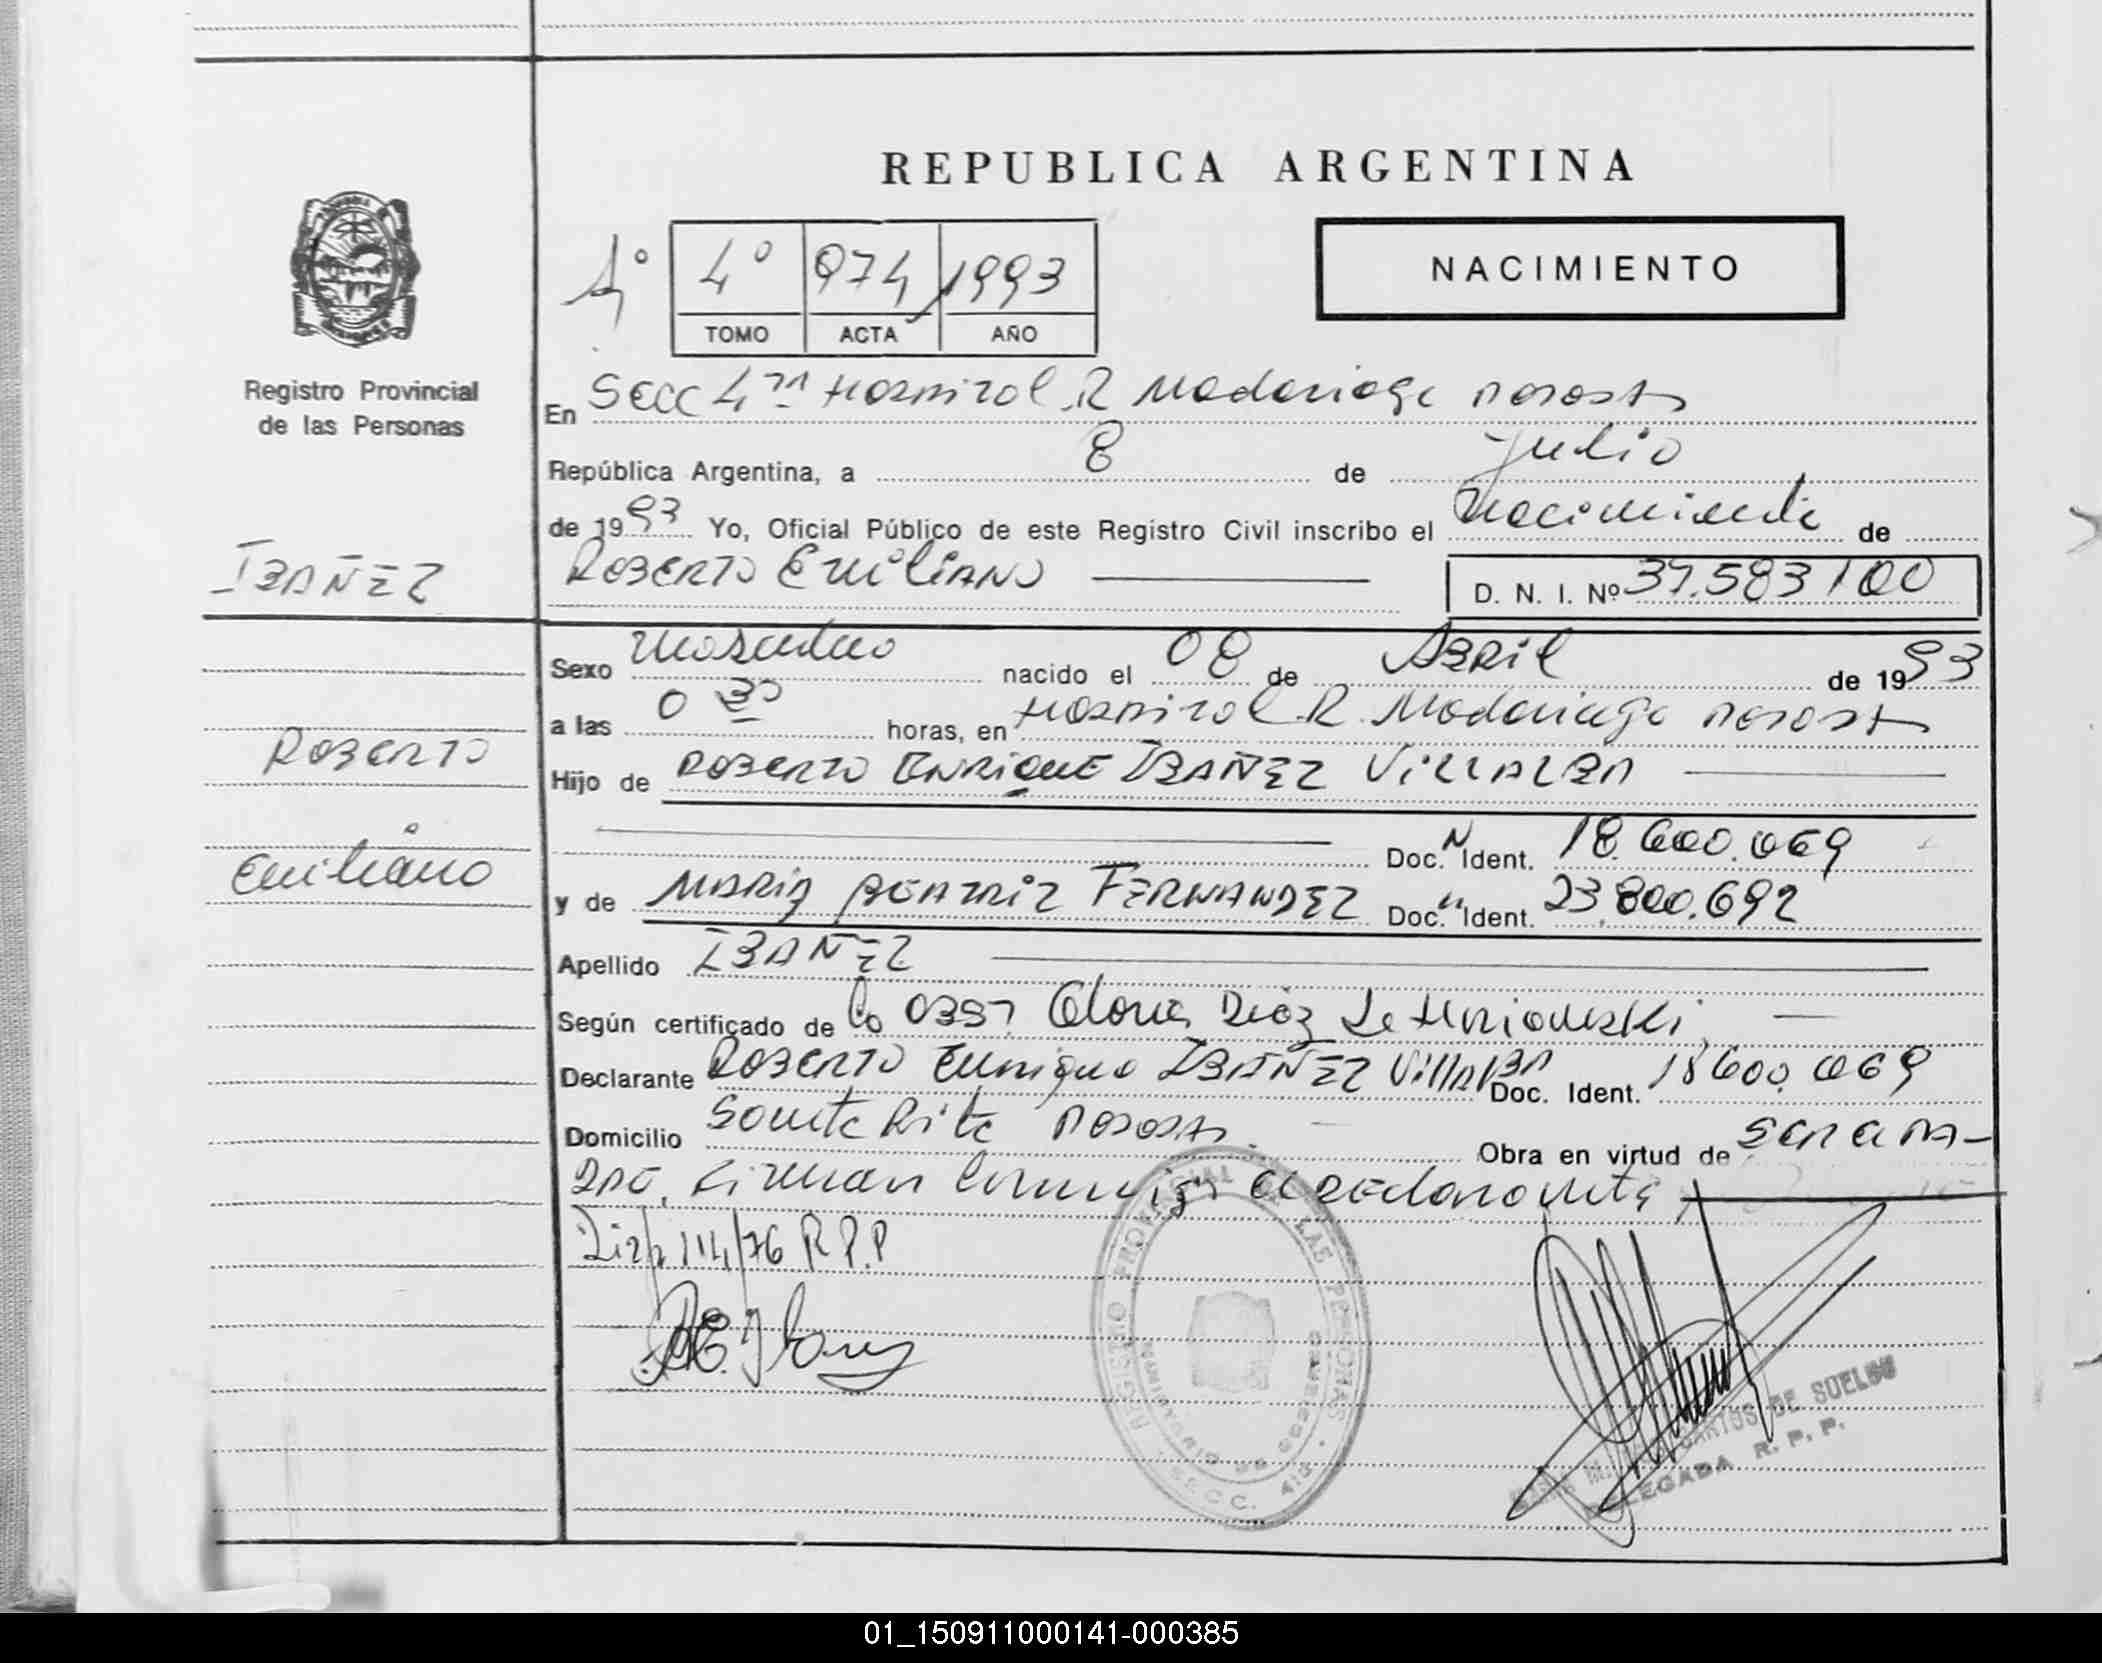 REPUBLICA ARGENTINA
4º 974 1993
TOMO ACTA AÑO
NACIMIENTO
Registro Provincial
de las Personas
En Secc 4ta Hospital R Madariaga Posadas
República Argentina, a 8 de Julio
de 1993 Yo, Oficial Público de este Registro Civil inscribo el Nacimiento de
IBAÑEZ
ROBERTO EMILIANO D. N. I. Nº 37.583100
Sexo Masculino nacido el 08 de ABRIL de 1993
a las 0 30 horas, en Hospital R. Madariaga Posadas
Roberto
Hijo de ROBERTO ENRIQUE IBAÑEZ VILLALBA
Doc. N Ident. 18.600.069
Emiliano
y de MARIA BEATRIZ FERNANDEZ Doc. N Ident. 23.800.692
Apellido IBAÑEZ
Según certificado de la Obst Gloria Diaz de
Declarante ROBERTO Enrique IBAÑEZ VILLALBA Doc. Ident. 18600.069
Domicilio Santa Rita Posadas Obra en virtud de
Firman el Declarante
Disp 114/76 R.P.P
REGISTRO PROVINCIAL DE LAS PERSONAS
SECC. 4ta
DE SUELDO
DELEGADA R. P. P.
01_150911000141-000385